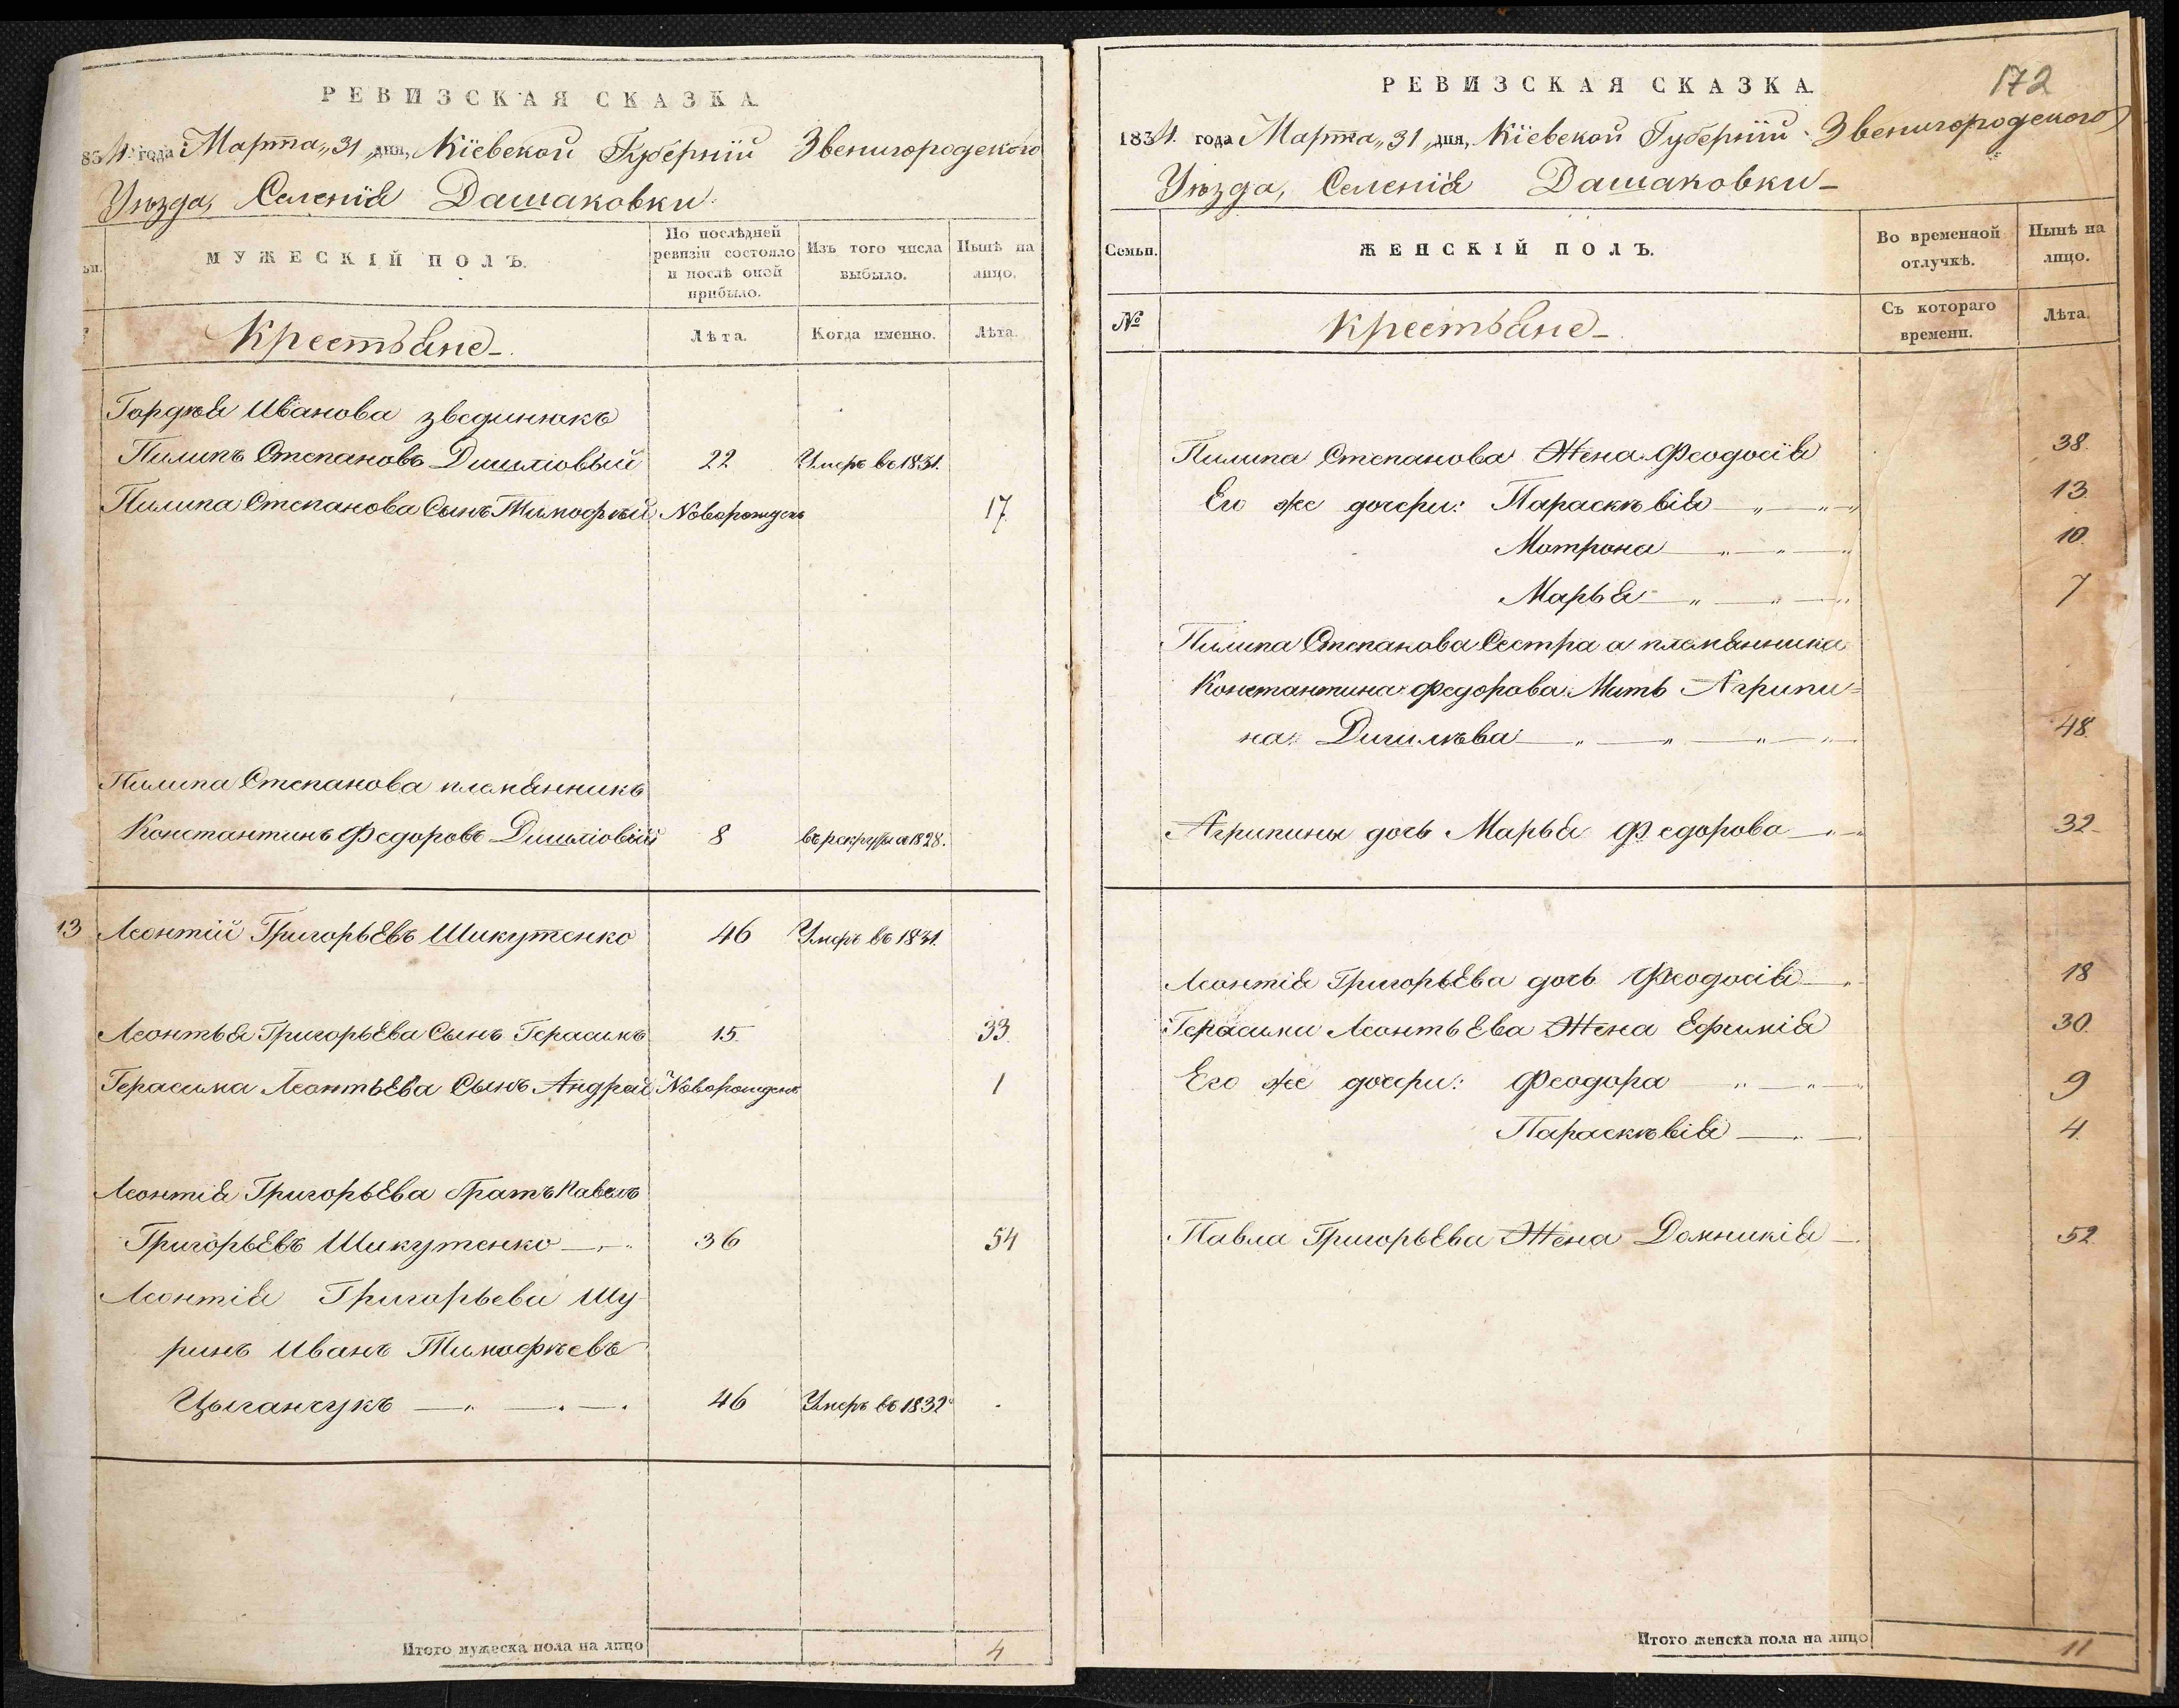 РЕВИЗСКАЯ СКАЗКА
834 года Марта „31 „дня, Кіевской Губерніи Звенигородского
Уѣзда, Селенія Дашаковки
МУЖЕСКІЙ ПОЛЪ.
По послѣдней ревизіи состояло и послѣ оной прибыло.
Изъ того числа выбыло.
Нынѣ на лицо.
Крестьяне
Лѣта.
Когда именно.
Лѣта.
Гордѣя Иванова
Пилипъ Степановъ 22 Умеръ въ 1831.
Пилипа Степанова Сынъ Тимофѣй Новорожденъ 17.
Пилипа Степанова племянникъ
Константинъ Федоровъ 8 въ рекруты 1828.
13 Леонтій Григорьевъ Шикутенко 46 Умеръ въ 1831.
Леонтья Григорьева Сынъ Герасимъ 15. 33.
Герасима Леонтьева Сынъ Андрей Новорожденъ 1
Леонтія Григорьева братъ Павелъ
Григорьевъ Шикутенко 36 54
Леонтія Григорьева Шу-
ринъ Иванъ Тимофѣевъ
Цыганчукъ 46 Умеръ въ 1832
Итого мужеска пола на лицо 4
172
РЕВИЗСКАЯ СКАЗКА.
1834. года Марта „31 „дня, Кіевской Губерніи Звенигородского
Уѣзда, Селенія Дашаковки
Семьи.
ЖЕНСКІЙ ПОЛЪ.
Во временной отлучкѣ.
Нынѣ на лицо.
№
Крестьяне
Съ котораго времени.
Лѣта.
Пилипа Степанова Жена Феодосія 38.
Его же дочери: Параскѣвія 13.
Мотрона 10.
Марья 7
Пилипа Степанова Сестра а племянника
Константина Федорова Мать Агрипи=
на 48.
Агрипины дочь Марья Федорова 32
Леонтія Григорьева дочь Феодосія 18
Герасима Леонтьева Жена Ефимія 30.
Его же дочери: Феодора 9
Параскѣвія 4.
Павла Григорьева Жена Домникія 52.
Итого женска пола на лицо 11